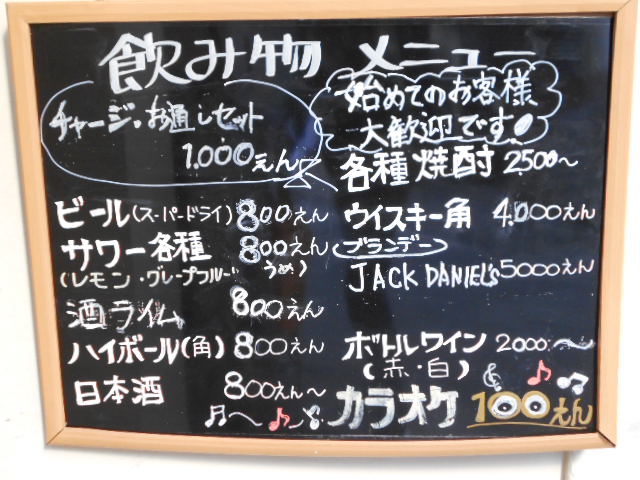 飲み物 メニュー
チャージ・お通しセット
1,000えん
始めてのお客様
大歓迎です!
ビール(スーパードライ) 800えん
サワー各種 800えん
(レモン・グレープフルーツ うめ)
酒ライム 800えん
ハイボール(角) 800えん
日本酒 800えん〜
各種焼酎 2500〜
ウイスキー角 4.000えん
(ブランデー)
JACK DANIEL'S 5000えん
ボトルワイン 2000.〜
(赤・白)
カラオケ 100えん